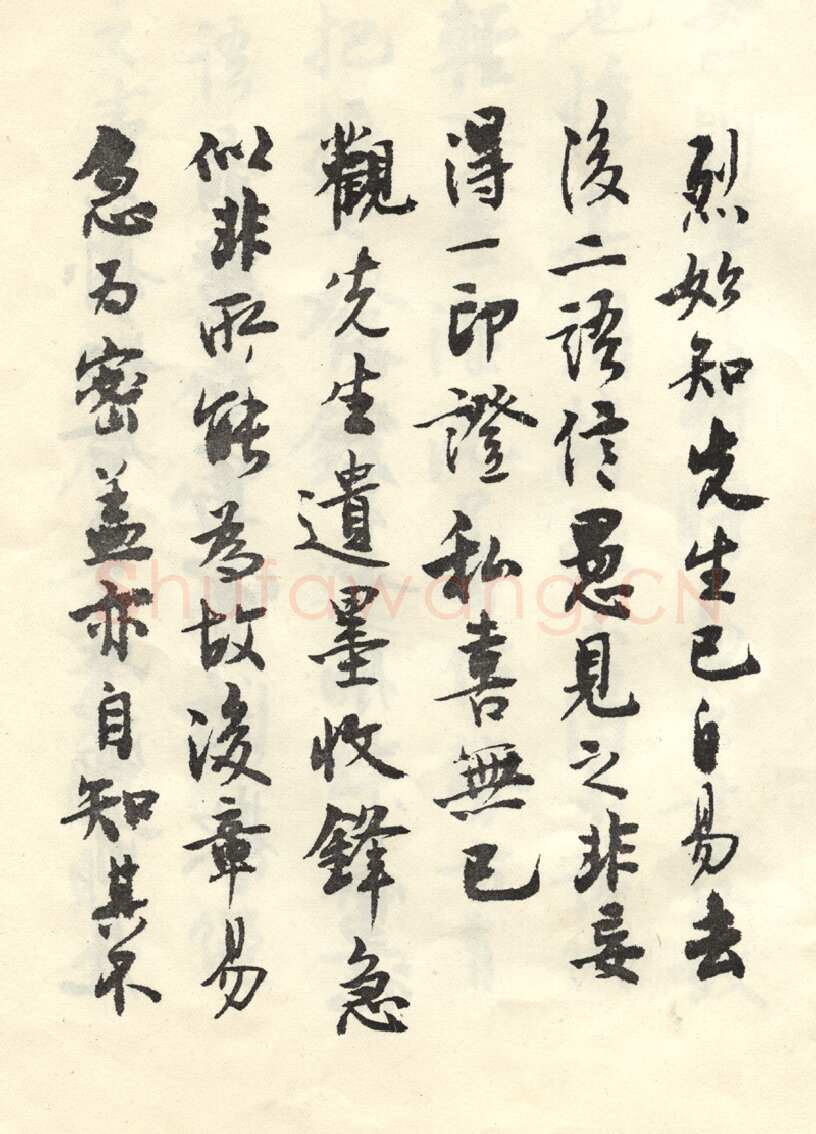 烈始知先生已自易去
後二語信愚見之非妄
得一印證私喜無已
觀先生遺墨收鋒急
似非所能為故後章易
急为密盖亦自知其不
Shufawang.CN